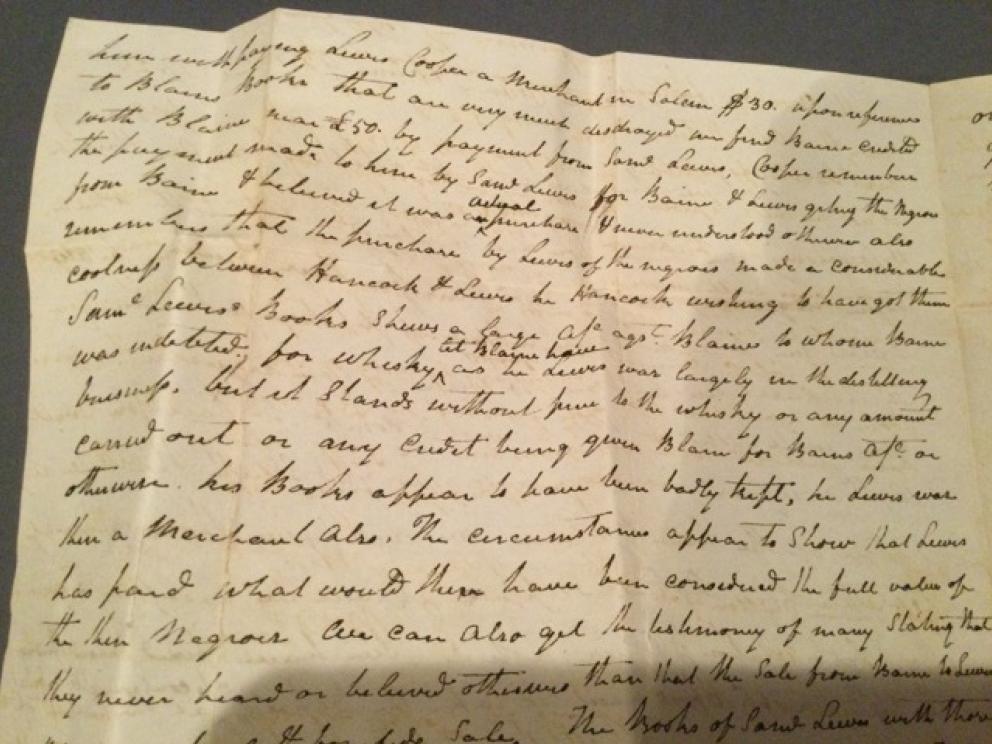 him with paying Lewis Cooper a Merchant in Salem $30. upon reference
to Blains Books that are very much destroyed we find Baine credited
with Blaine near £50. by payment from Saml Lewis, Cooper remembers
the payment made to him by Saml Lewis for Baine & Lewis geting the Negroes
from Baine & believed it was an actual purchase & never understood otherwise also
remembers that the purchase by Lewis of the negroes made a considerable
coolness between Hancock & Lewis he Hancock wishing to have got them
Saml Lewis's Books Shews a large a/c agst Blaines to whome Baine
was indebted, for whisky let Blaine have as he Lewis was largely in the distilling
business, but it Stands without price to the whisky or any amount
carried out or any Credit being given Blain for Bains a/c or
otherwise. his Books appear to have been badly kept, he Lewis was
then a Merchant also. The circumstances appear to Show that Lewis
has paid what would then have been considered the full value of
the then Negroes We can also get the testimony of many Stating that
they never heard or believed otherwise than that the Sale from Baine to Lewis
Sale The Books of Saml Lewis with those